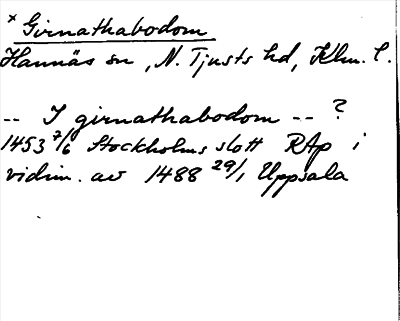 × Girnathabodom
Hannäs sn, N. Tjusts hd, Klm. l.
-- I girnathabodom -- ?
1453 7/6 Stockholms slott RAp i
vidim. av 1488 29/1 Uppsala